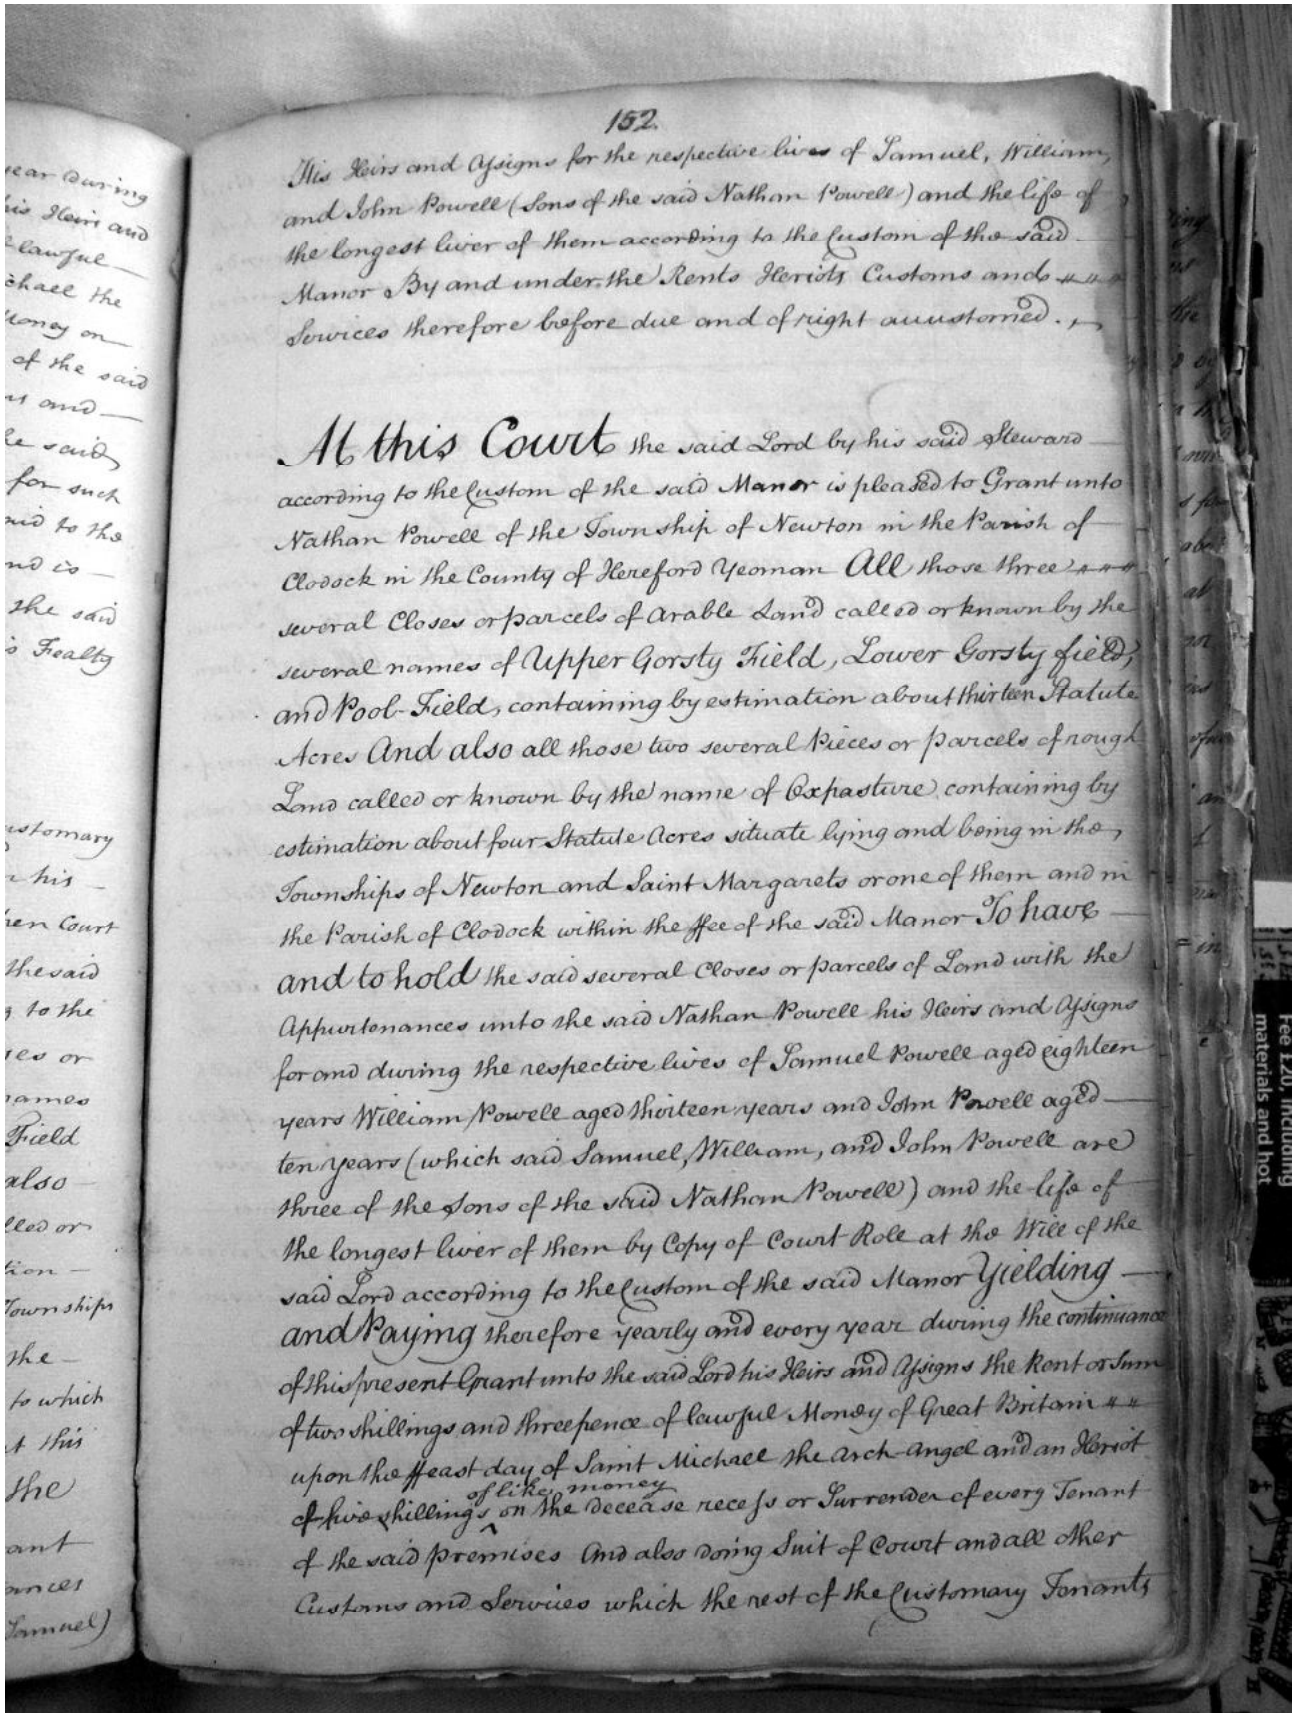 year during
his Heirs and
lawful
chael the
Money on
of the said
and
said
for such
said to the
and is
the said
Fealty
ustomary
his
Court
the said
to the
or
names
Field
also
lled or
tion
Townships
the
to which
at this
the
ant
ances
Samuel)
152
His Heirs and Assigns for the respective lives of Samuel, William,
and John Powell (Sons of the said Nathan Powell) and the life of
the longest liver of them according to the Custom of the said
Manor By and under the Rents Heriots Customs and
Services therefore before due and of right accustomed.
At this Court the said Lord by his said Steward
according to the Custom of the said Manor is pleased to Grant unto
Nathan Powell of the Township of Newton in the Parish of
Clodock in the County of Hereford Yeoman All those three
several Closes or parcels of Arable Land called or known by the
several names of Upper Gorsty Field, Lower Gorsty field,
and Pool-Field, containing by estimation about thirteen Statute
Acres And also all those two several Pieces or parcels of rough
Land called or known by the name of Oxpasture containing by
estimation about four Statute Acres situate lying and being in the
Townships of Newton and Saint Margarets or one of them and in
the Parish of Clodock within the ffee of the said Manor To have
and to hold the said several Closes or parcels of Land with the
Appurtenances unto the said Nathan Powell his Heirs and Assigns
for and during the respective lives of Samuel Powell aged eighteen
years William Powell aged thirteen years and John Powell aged
ten years (which said Samuel, William, and John Powell are
three of the Sons of the said Nathan Powell) and the life of
the longest liver of them by Copy of Court Roll at the Will of the
said Lord according to the Custom of the said Manor Yielding
and Paying therefore yearly and every year during the continuance
of this present Grant unto the said Lord his Heirs and Assigns the Rent or Sum
of two shillings and threepence of lawful Money of Great Britain
upon the ffeast day of Saint Michael the Arch-Angel and an Heriot
of like money
of five shillings ^ on the decease recess or Surrender of every Tenant
of the said premises And also doing Suit of Court and all other
Customs and Services which the rest of the Customary Tenants
Fee £20, including
materials and hot